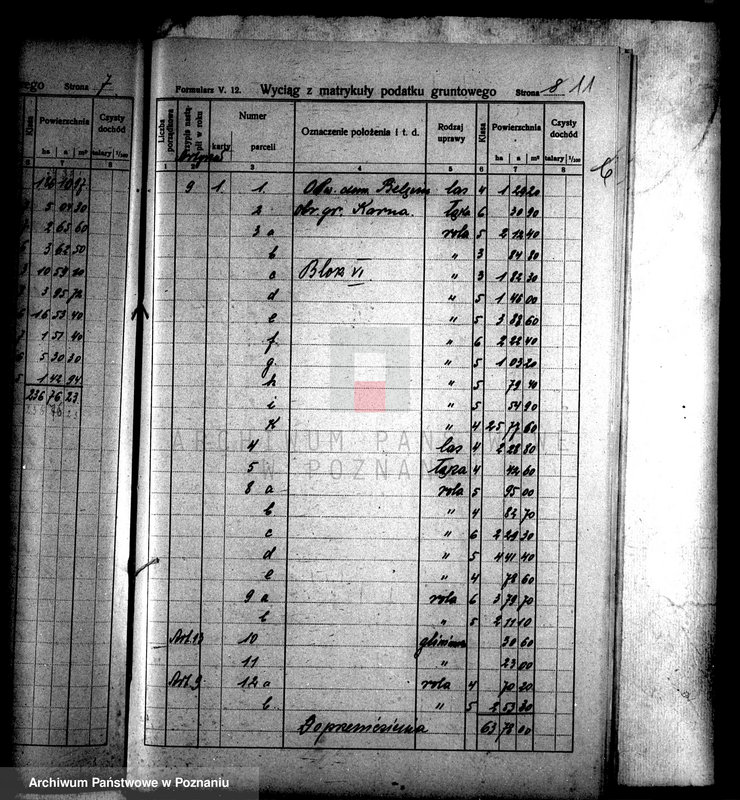 Strona 7
Klasa Powierzchnia Czysty dochód
ha a m² talary 1/100
6 7 8
5 07 30
2 65 60
3 62 50
10 59 20
3 95 72
16 53 40
1 51 40
5 30 30
1 42 94
236 76 23
Formularz V. 12. Wyciąg z matrykuły podatku gruntowego Strona 8 11
Liczba porządkowa Numer Oznaczenie położenia i t. d. Rodzaj uprawy Klasa Powierzchnia Czysty dochód
karty parceli ha a m² talary 1/100
1 2 3 4 5 6 7 8
9 1. 1. las 4 1 29 20
2 obr. gr. Karna. łąka 6 30 90
3 a rola 5 2 12 40
b " 3 84 80
c Blok VI " 3 1 82 30
d " 5 1 46 00
e " 5 3 88 60
f " 6 2 22 40
g " 5 1 03 20
h " 5 79 40
i " 5 54 90
k " 4 25 77 60
4 las 4 2 28 80
5 łąka 4 44 60
8 a rola 5 95 00
b " 4 84 70
c " 6 2 29 30
d " 5 4 41 40
e " 4 78 60
9 a rola 6 3 79 70
b " 5 2 11 10
Art. 13 10 30 60
11 " 23 00
Art. 9 12 a rola 4 70 20
b " 5 2 53 30
Do przeniesienia 63 78 00
ARCHIWUM PAŃSTWOWE
W POZNANIU
Archiwum Państwowe w Poznaniu